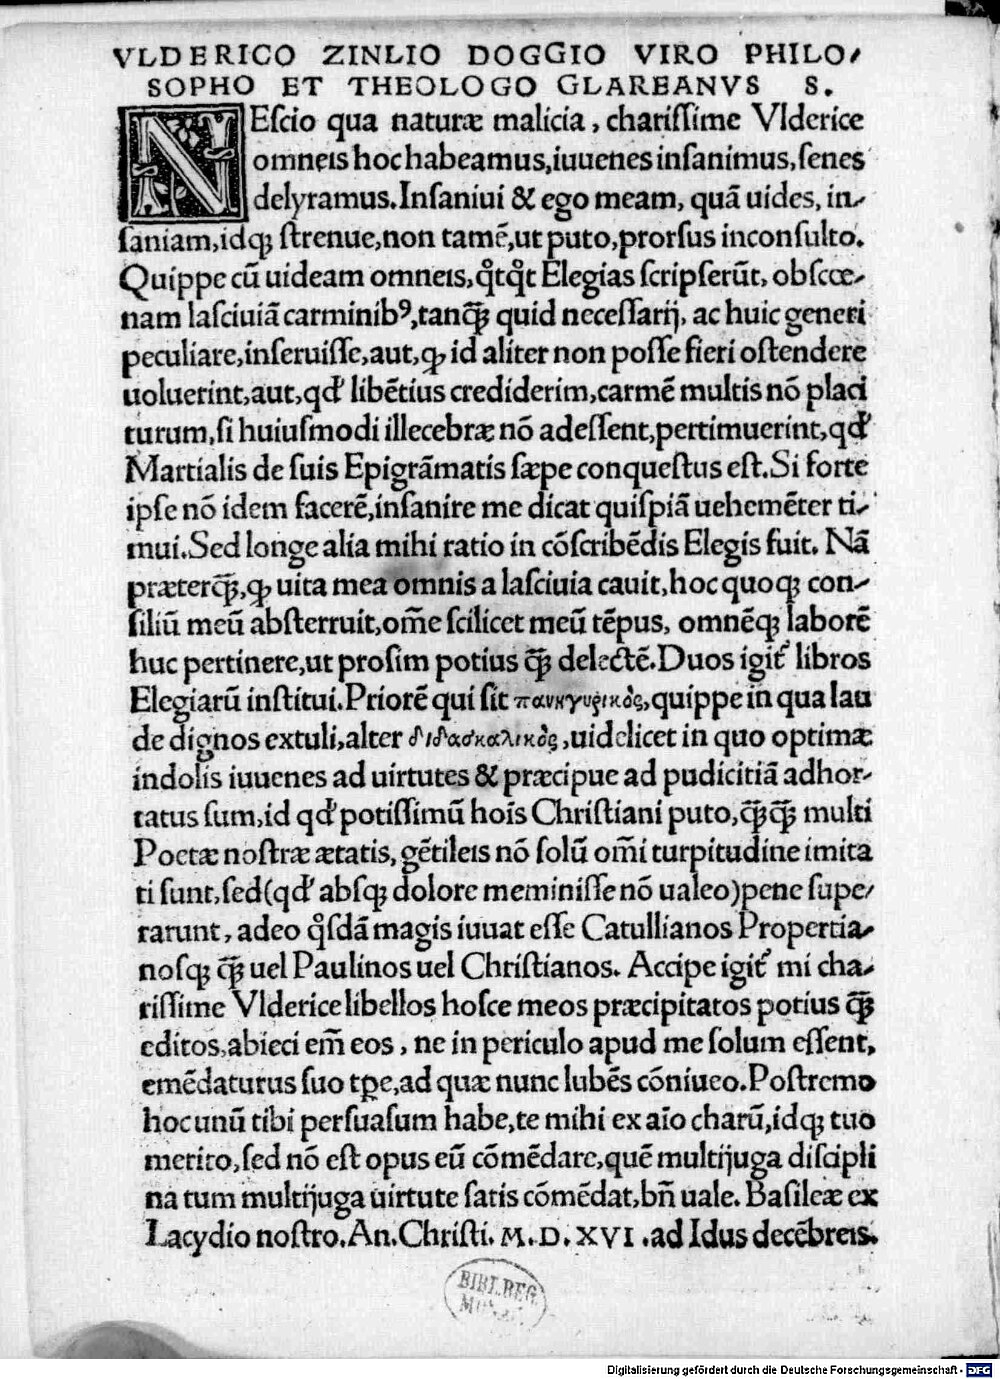 VLDERICO ZINLIO DOGGIO VIRO PHILO/
SOPHO ET THEOLOGO GLAREANVS S.
NEſcio qua naturæ malicia, chariſſime Vlderice
omneis hoc habeamus, iuuenes inſanimus, ſenes
delyramus. Inſaniui & ego meam, quã uides, in/
ſaniam, idqꝫ ſtrenue, non tamẽ, ut puto, prorſus inconſulto.
Quippe cũ uideam omneis, qͦtqͦt Elegias ſcripſerũt, obſcœ/
nam laſciuiã carminibꝰ, tanqꝫ̃ quid neceſſarij, ac huic generi
peculiare, inſeruiſſe, aut, ꝙ id aliter non poſſe fieri oſtendere
uoluerint, aut, qđ libẽtius crediderim, carmẽ multis nõ placi
turum, ſi huiuſmodi illecebræ nõ adeſſent, pertimuerint, qđ
Martialis de ſuis Epigrãmatis ſæpe conqueſtus eſt. Si forte
ipſe nõ idem facerẽ, inſanire me dicat quiſpiã uehemẽter ti/
mui. Sed longe alia mihi ratio in cõſcribẽdis Elegis fuit. Nã
præterqꝫ̃, ꝙ uita mea omnis a laſciuia cauit, hoc quoqꝫ con/
ſiliũ meũ abſterruit, om̃e ſcilicet meũ tẽpus, omnẽqꝫ laborẽ
huc pertinere, ut proſim potius qꝫ̃ delectẽ. Duos igit᷑ libros
Elegiarũ inſtitui. Priorẽ qui ſit πανηγυρικὸς, quippe in qua lau
de dignos extuli, alter διδασκαλικὸς, uidelicet in quo optimæ
indolis iuuenes ad uirtutes & præcipue ad pudicitiã adhor/
tatus ſum, id qđ potiſſimũ hoĩs Chriſtiani puto, qꝫ̃qꝫ̃ multi
Poetæ noſtræ ætatis, gẽtileis nõ ſolũ om̃i turpitudine imita
ti ſunt, ſed (qđ abſqꝫ dolore meminiſſe nõ ualeo) pene ſupe/
rarunt, adeo qͦſdã magis iuuat eſſe Catullianos Propertia/
noſqꝫ qꝫ̃ uel Paulinos uel Chriſtianos. Accipe igit᷑ mi cha/
riſſime Vlderice libellos hoſce meos præcipitatos potius qꝫ̃
editos, abieci em̃ eos, ne in periculo apud me ſolum eſſent,
emẽdaturus ſuo tꝑe, ad quæ nunc lubẽs cõniueo. Poſtremo
hoc unũ tibi perſuaſum habe, te mihi ex aĩo charũ, idqꝫ tuo
merito, ſed nõ eſt opus eũ cõmẽdare, quẽ multijuga diſcipli
na tum multijuga uirtute ſatis cõmẽdat, bñ uale. Baſileæ ex
Lacydio noſtro. An. Chriſti. M.D.XVI. ad Idus decẽbreis.
BIBL.REG.
Digitalisierung gefördert durch die Deutsche Forschungsgemeinschaft - DFG